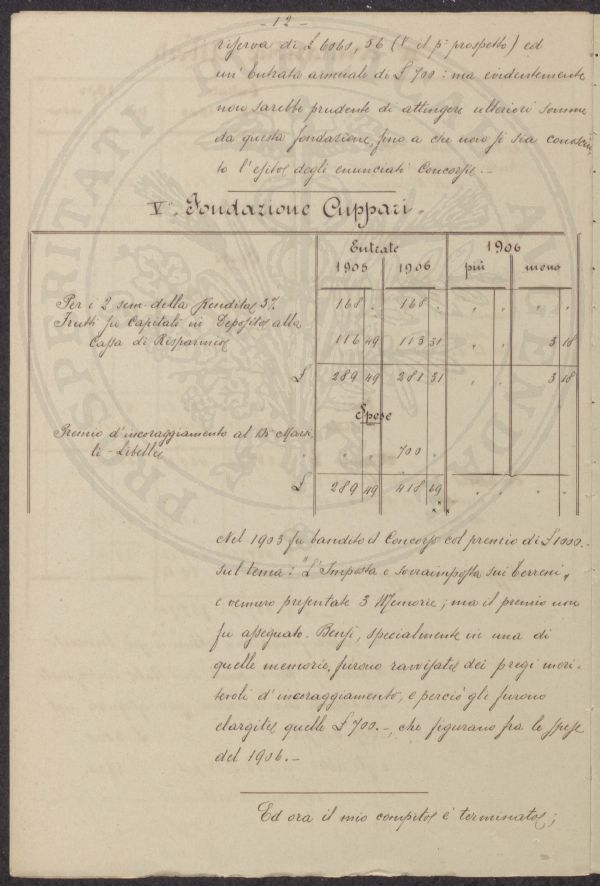 - 12 -
riserva di £ 6060,56 (V. il 5° prospetto) ed
un' Entrata annuale di £ 700: ma evidentemente
non sarebbe prudente di attingere ulteriori somme
da questa fondazione, fino a che non si sia conosciu
to l'esito degli enunciati Concorsi. -
V°. Fondazione Cuppari.
Entrate 1906
1905 1906 più meno
Per i 2 sem. della Rendita 3% 168 . 168 . " " " "
Frutti su Capitali in Deposito alla
Cassa di Risparmio 116 49 113 31 " " 3 18
£ 289 49 281 31 " " 3 18
Spese
Premio d'incoraggiamento al Dr Mark
li-Libelli " " 700 . " " " "
£ 289 49 418 69 " " " "
Nel 1903 fu bandito il Concorso col premio di £ 1000.-
sul tema: "L'Imposta e sovraimposta sui Terreni„
e vennero presentate 3 Memorie; ma il premio non
fu assegnato. Bensì, specialmente in una di
quelle memorie, furono ravvisate dei pregi meri-
tevoli d'incoraggiamento, e perciò gli furono
elargite quelle £ 700.-, che figurano fra le spese
del 1906. -
Ed ora il mio compito è terminato;
PROSPERITATI PUBLICAE AUGENDAE